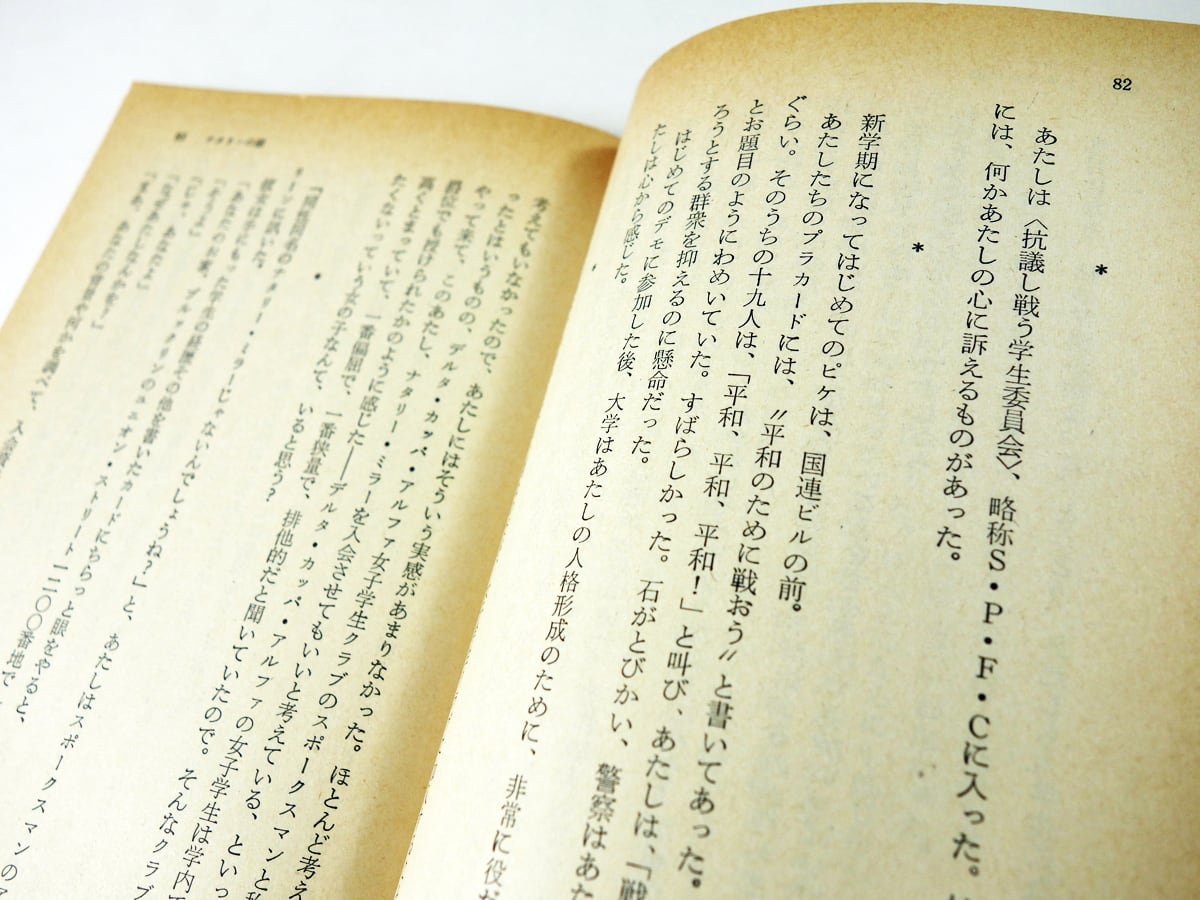 82
*
あたしは〈抗議し戦う学生委員会〉、略称S・P・F・Cに入った。
には、何かあたしの心に訴えるものがあった。
*
新学期になってはじめてのピケは、国連ビルの前。
あたしたちのプラカードには、〝平和のために戦おう〟と書いてあった。
ぐらい。そのうちの十九人は、「平和、平和、平和！」と叫び、あたしは、「戦
とお題目のようにわめいていた。すばらしかった。石がとびかい、警察はあた
ろうとする群衆を抑えるのに懸命だった。
はじめてのデモに参加した後、大学はあたしの人格形成のために、非常に役だ
たしは心から感じた。
考えてもいなかったので、あたしにはそういう実感があまりなかった。ほとんど考え
ったとはいうものの、デルタ・カッパ・アルファ女子学生クラブのスポークスマンと
やって来て、このあたし、ナタリー・ミラーを入会させてもいいと考えている、といっ
爵位でも授けられたかのように感じた――デルタ・カッパ・アルファの女子学生は学内
高くとまっていて、一番偏屈で、一番狭量で、排他的だと聞いていたので。そんなクラブ
たくないっていう女の子なんて、いると思う？
*
ナタリー・ミラーじゃないんでしょうね？」と、あたしはスポークスマンの
ターに訊いた。
彼女は手にもった学生の経歴その他を書いたカードにちらっと眼をやると、
「あなたのお家、ブルックリンのユニオン・ストリート一二〇〇番地で
「そうよ」
「じゃ、あなたよ」
「なぜあたしなんかを？」
「まあ、あなたの背景や何かを調べて、入会